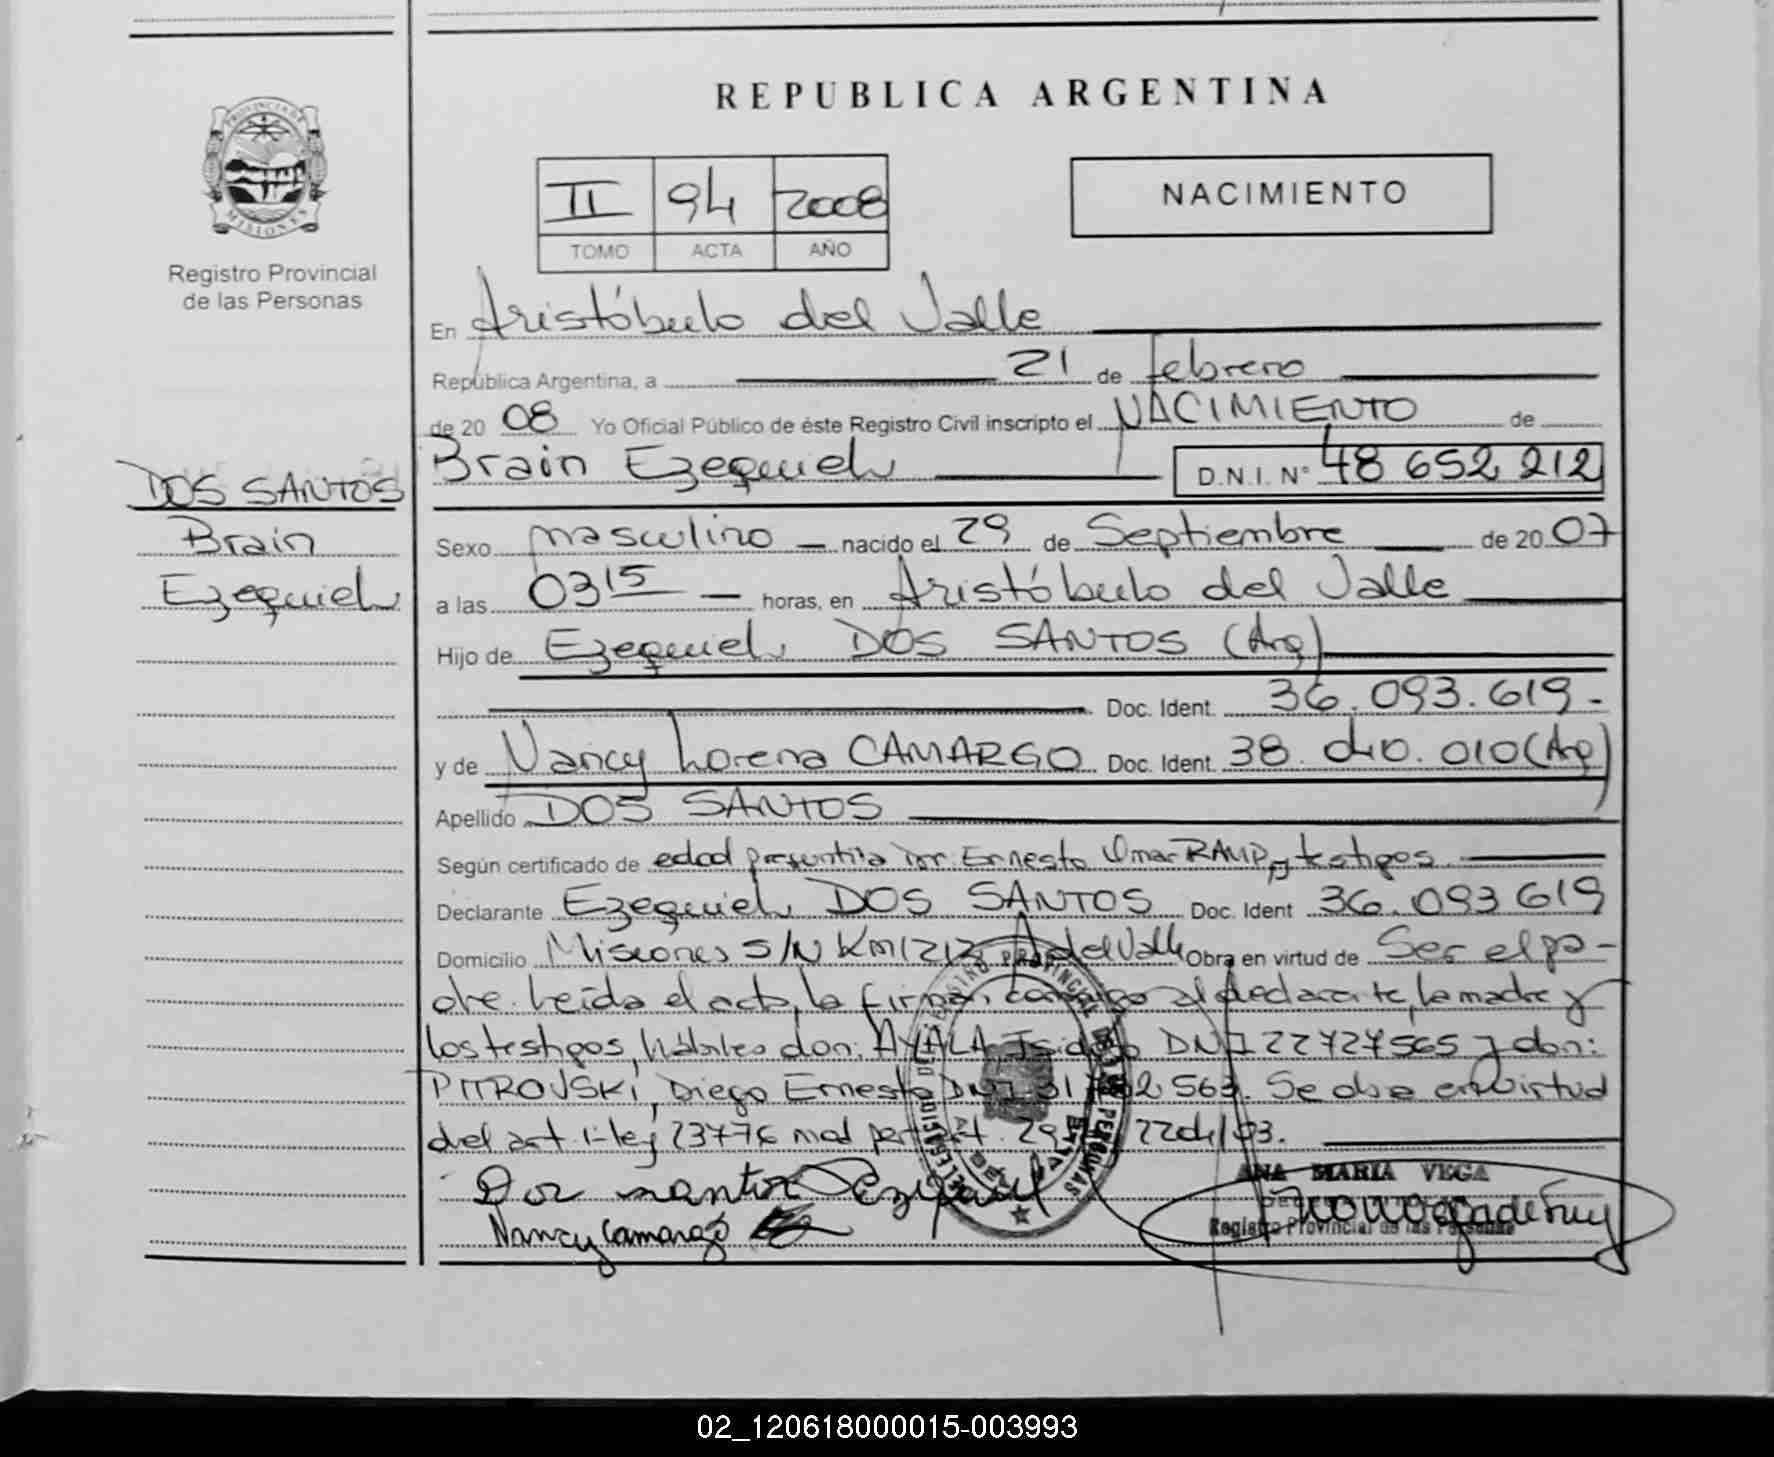 REPUBLICA ARGENTINA
PROVINCIA DE
MISIONES
Registro Provincial
de las Personas
II 94 2008
TOMO ACTA AÑO
NACIMIENTO
En Aristóbulo del Valle
República Argentina, a 21 de febrero
de 20 08 Yo Oficial Público de éste Registro Civil inscripto el NACIMIENTO de
Brain Ezequiel D.N.I. Nº 48 652 212
DOS SANTOS
Brain
Ezequiel
Sexo masculino nacido el 29 de Septiembre de 20 07
a las 03 15 horas, en Aristóbulo del Valle
Hijo de Ezequiel DOS SANTOS (Arg)
Doc. Ident. 36.093.619.-
y de Nancy Lorena CAMARGO Doc. Ident. 38. 010 (Arg)
Apellido DOS SANTOS
Según certificado de edad presuntiva Dor. Ernesto Omar RAMP y testigos
Declarante Ezequiel DOS SANTOS Doc. Ident 36.093 619
Domicilio Misiones S/N Km 1212 A del Valle Obra en virtud de Ser el pa-
dre. Leída el acta, la firman, conmigo el declarante, la madre y
los testigos, hábiles don: AYALA, Isidro DNI 22727565 y don:
PITROVSKI, Diego Ernesto DNI 31 2 563. Se obra en virtud
del art. 1- ley 23776 mod por art. 29
Dos santos Ezequiel
Nancy Camargo
ANA MARIA VEGA
Registro Provincial de las Personas
02_120618000015-003993